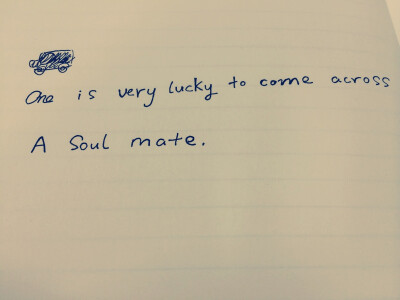 One is very lucky to come across
A Soul mate.